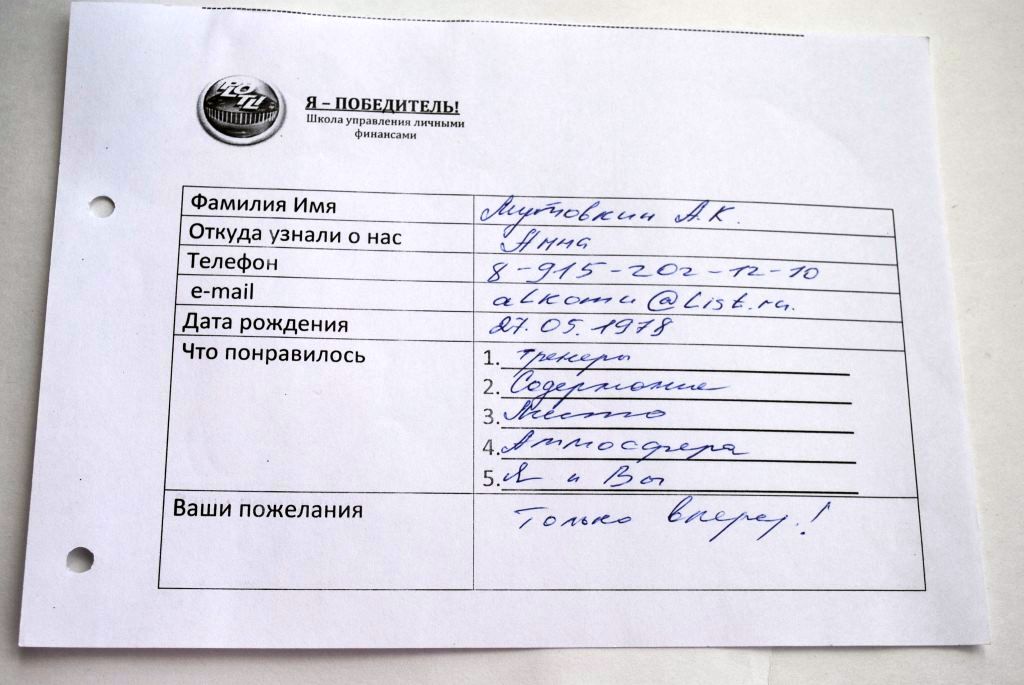 Я – ПОБЕДИТЕЛЬ!
Школа управления личными
финансами
Фамилия Имя Мутовкин А.К.
Откуда узнали о нас Анна
Телефон 8-915-202-12-10
e-mail alkomu@list.ru.
Дата рождения 27.05.1978
Что понравилось 1. тренеры
2. Содержание
3. Место
4. Атмосфера
5. Я и Вы
Ваши пожелания Только вперед!